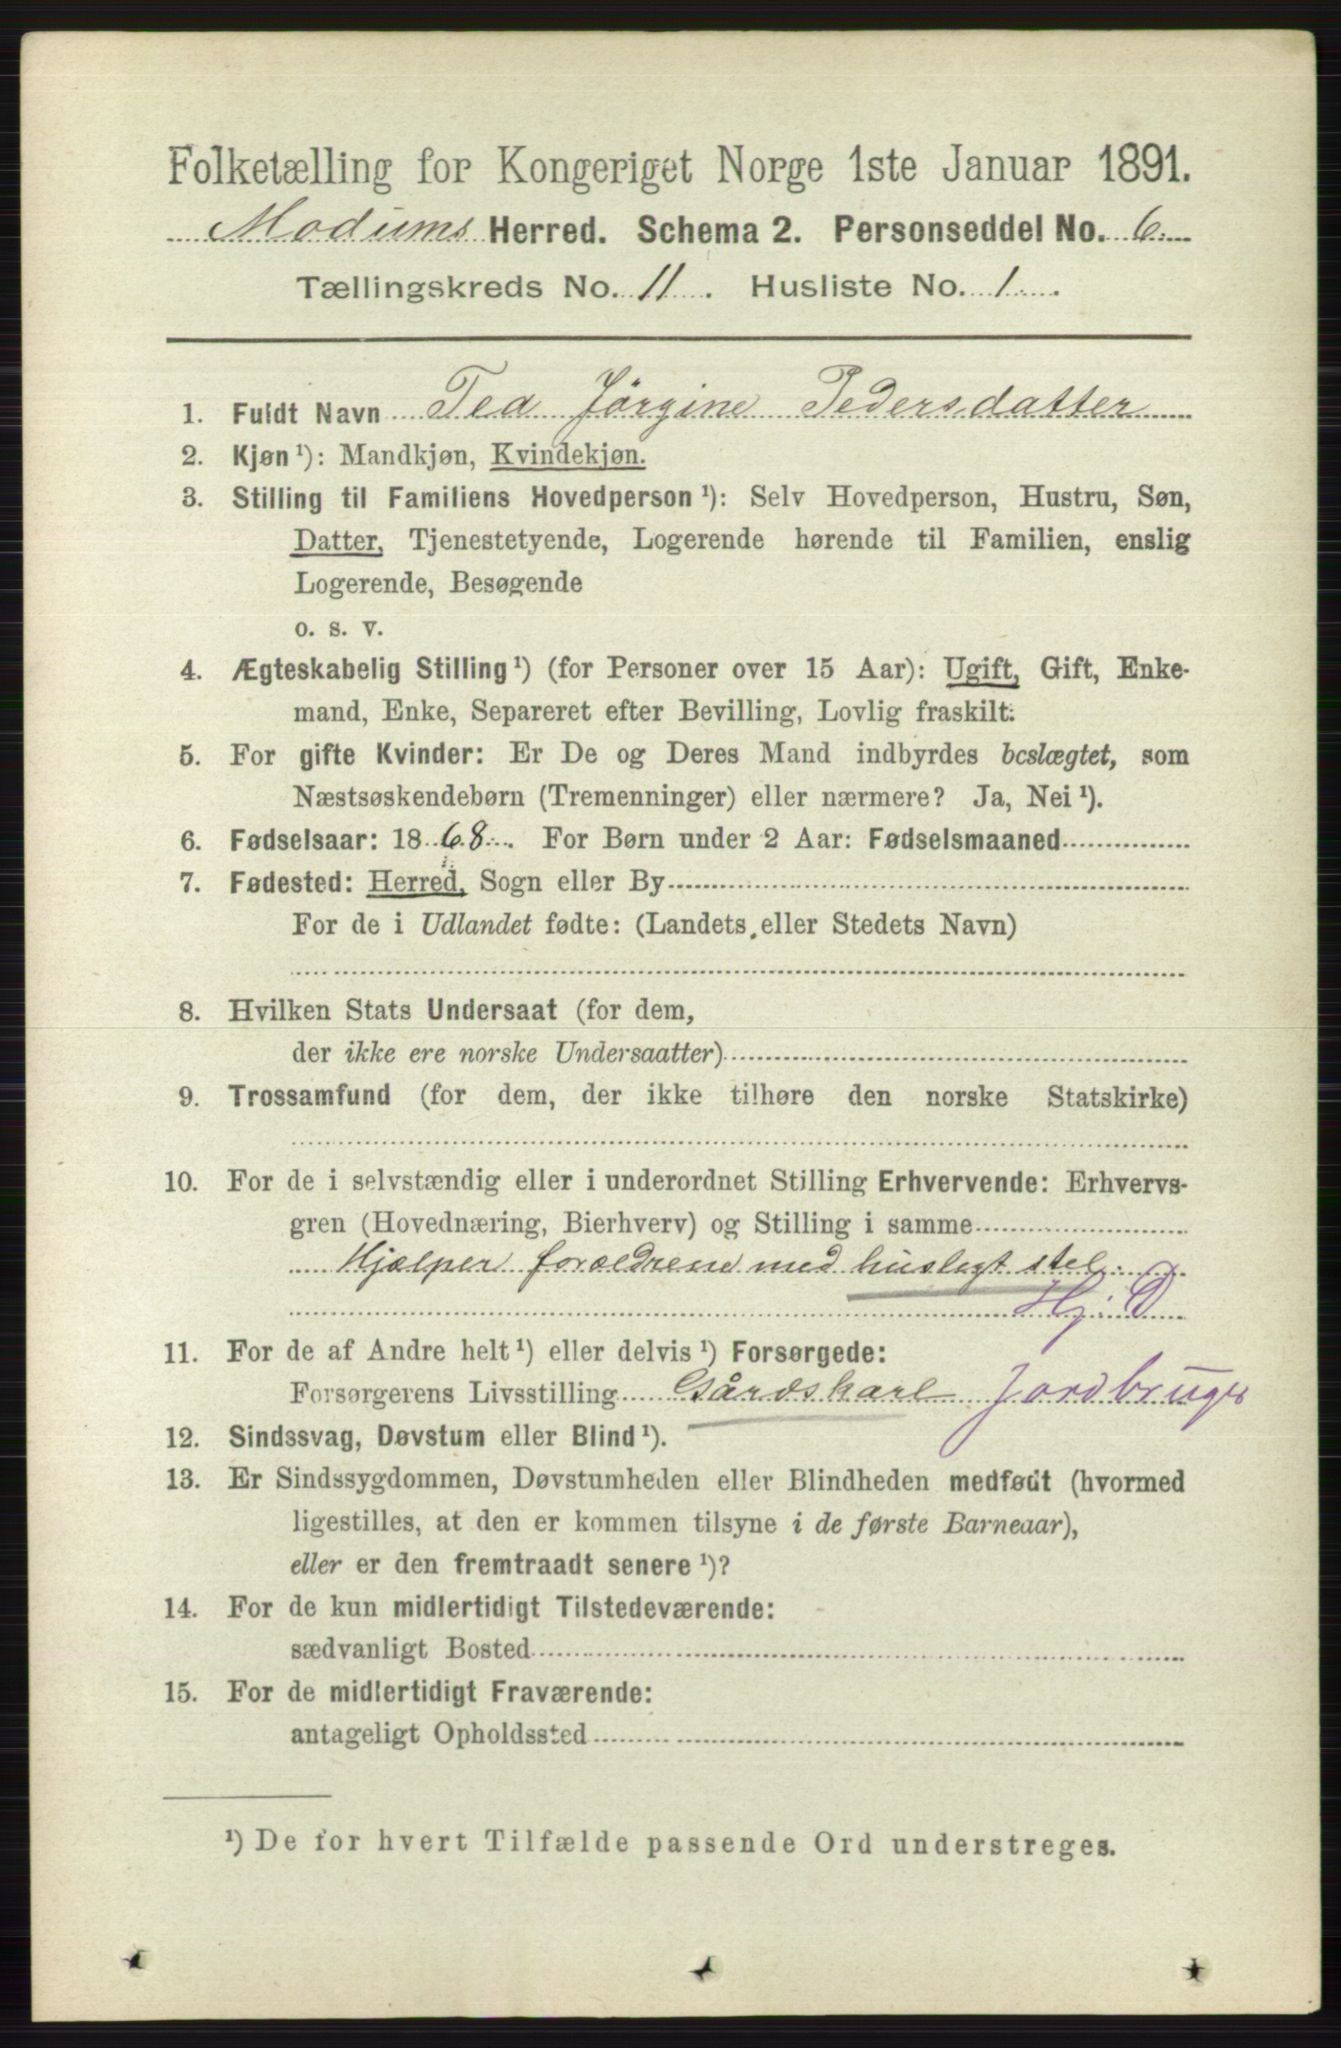 Folketælling for Kongeriget Norge 1ste Januar 1891.
Modums Herred. Schema 2. Personseddel No. 6.
Tællingskreds No. 11. Husliste No. 1.
1. Fuldt Navn Tea Jørgine Pedersdatter
2. Kjøn ¹): Mandkjøn, Kvindekjøn.
3. Stilling til Familiens Hovedperson ¹): Selv Hovedperson, Hustru, Søn,
Datter, Tjenestetyende, Logerende hørende til Familien, enslig
Logerende, Besøgende
o. s. v.
4. Ægteskabelig Stilling ¹) (for Personer over 15 Aar): Ugift, Gift, Enke-
mand, Enke, Separeret efter Bevilling, Lovlig fraskilt.
5. For gifte Kvinder: Er De og Deres Mand indbyrdes beslægtet, som
Næstsøskendebørn (Tremenninger) eller nærmere? Ja, Nei ¹).
6. Fødselsaar: 1868. For Børn under 2 Aar: Fødselsmaaned
7. Fødested: Herred, Sogn eller By
For de i Udlandet fødte: (Landets eller Stedets Navn)
8. Hvilken Stats Undersaat (for dem,
der ikke ere norske Undersaatter)
9. Trossamfund (for dem, der ikke tilhøre den norske Statskirke)
10. For de i selvstændig eller i underordnet Stilling Erhvervende: Erhvervs-
gren (Hovednæring, Bierhverv) og Stilling i samme
Hjælper forældrene med huslegt stel.
Hj. D
11. For de af Andre helt ¹) eller delvis ¹) Forsørgede:
Forsørgerens Livsstilling Gårdskarl Jordbruger
12. Sindssvag, Døvstum eller Blind ¹).
13. Er Sindssygdommen, Døvstumheden eller Blindheden medfødt (hvormed
ligestilles, at den er kommen tilsyne i de første Barneaar),
eller er den fremtraadt senere ¹)?
14. For de kun midlertidigt Tilstedeværende:
sædvanligt Bosted
15. For de midlertidigt Fraværende:
antageligt Opholdssted
¹) De for hvert Tilfælde passende Ord understreges.